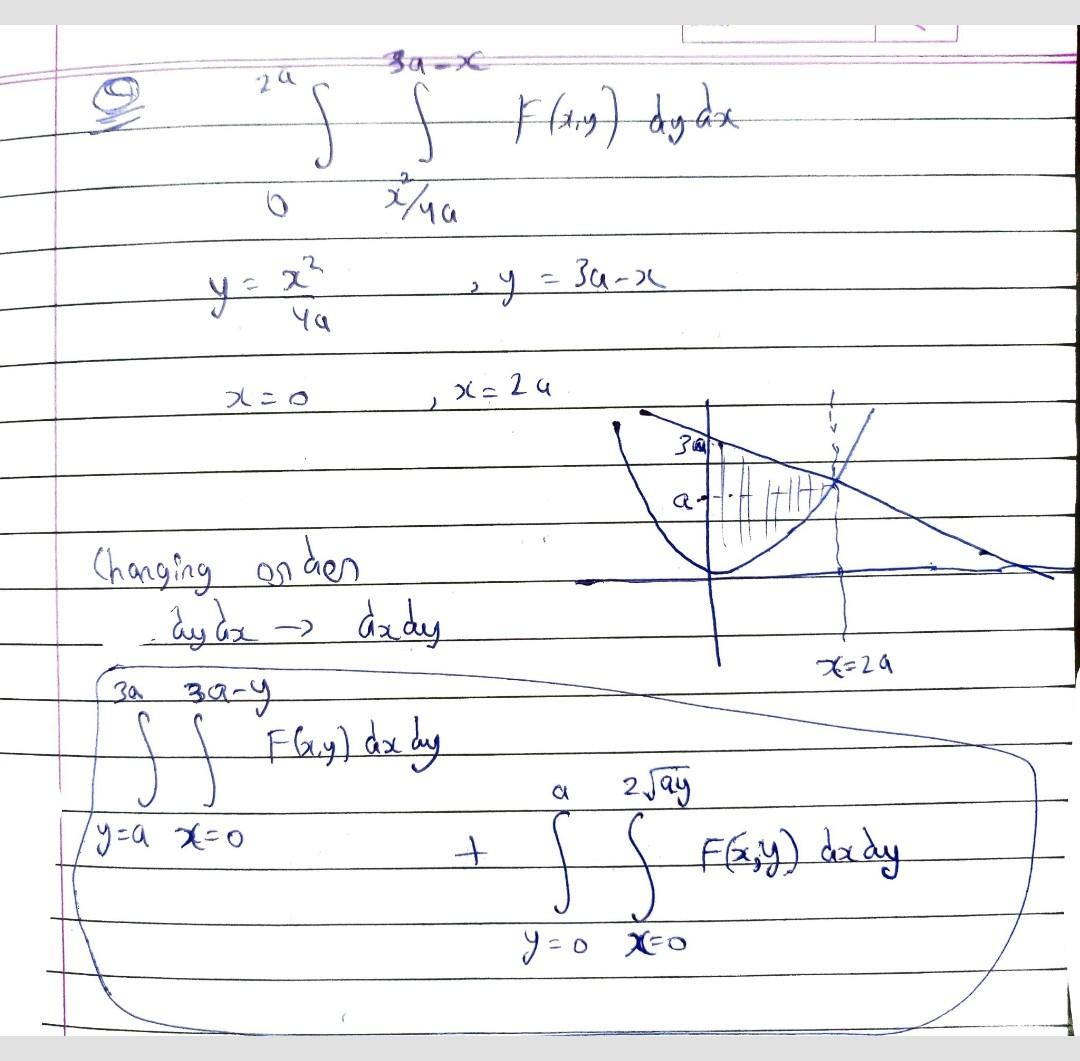 Q ∫₀^{2a} ∫_{x²/4a}^{3a-x} F(x,y) dy dx
y = x²/4a , y = 3a-x
x = 0 , x = 2a
3a
a
x=2a
Changing order
dy dx → dx dy
∫_{y=a}^{3a} ∫_{x=0}^{3a-y} F(x,y) dx dy
+ ∫_{y=0}^{a} ∫_{x=0}^{2√ay} F(x,y) dx dy